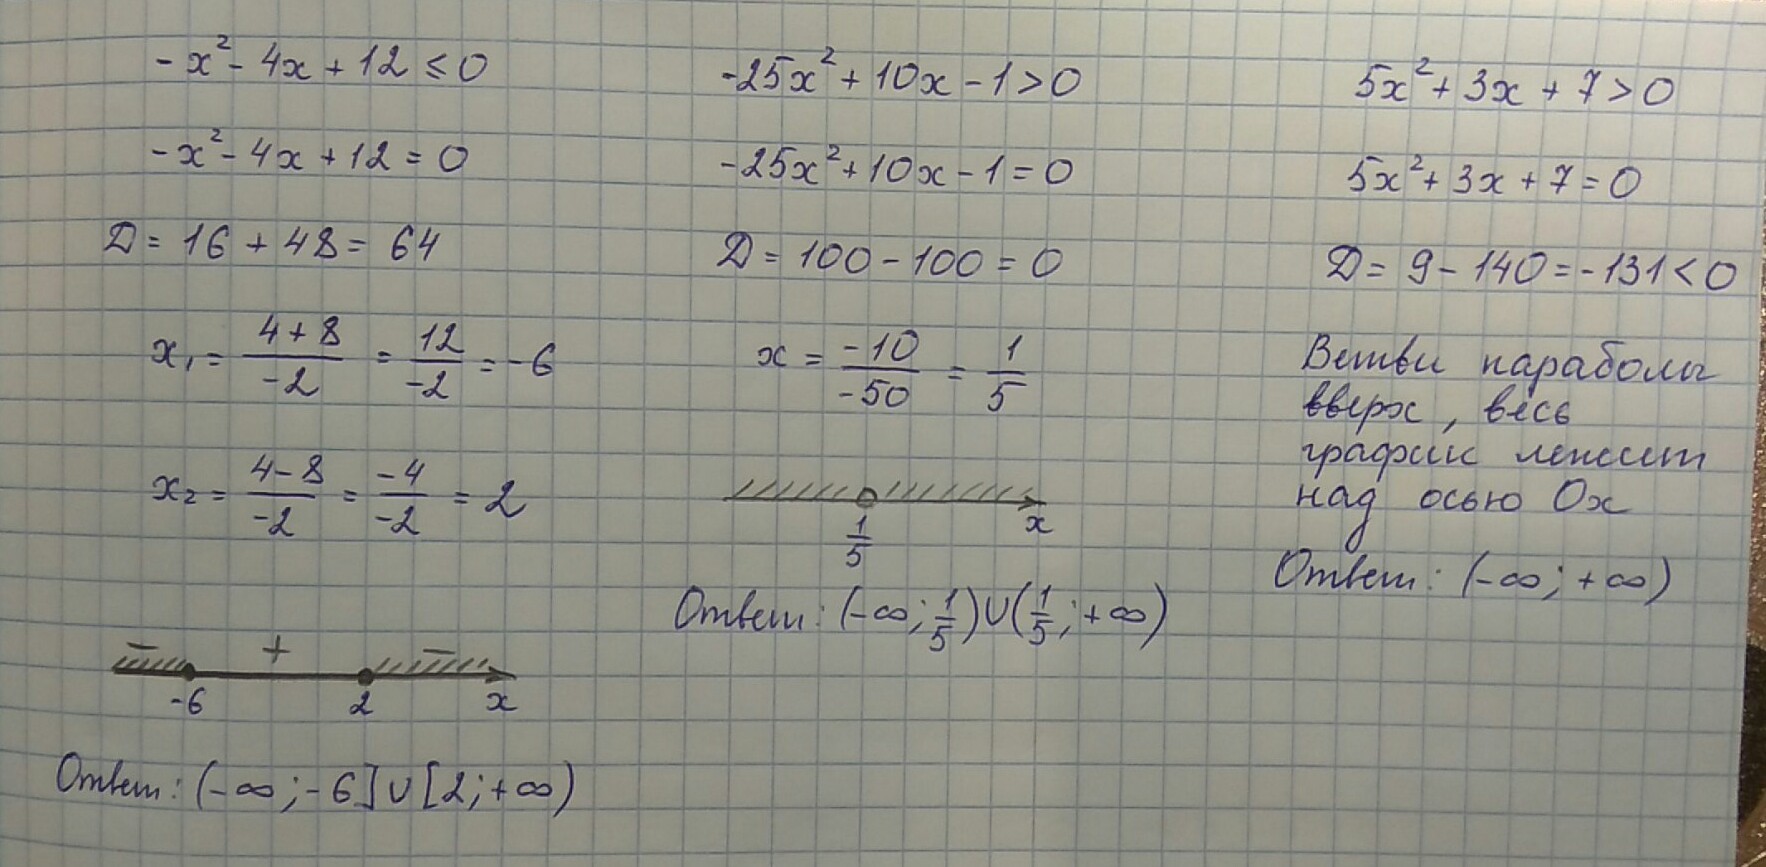 -x² - 4x + 12 ≤ 0
-x² - 4x + 12 = 0
Д = 16 + 48 = 64
x₁ = (4+8)/(-2) = 12/(-2) = -6
x₂ = (4-8)/(-2) = (-4)/(-2) = 2
− + −
-6 2 x
Ответ: (-∞; -6] ∪ [2; +∞)
-25x² + 10x - 1 > 0
-25x² + 10x - 1 = 0
Д = 100 - 100 = 0
x = (-10)/(-50) = 1/5
1/5 x
Ответ: (-∞; 1/5) ∪ (1/5; +∞)
5x² + 3x + 7 > 0
5x² + 3x + 7 = 0
Д = 9 - 140 = -131 < 0
Ветви параболы
вверх, весь
график лежит
над осью Ох
Ответ: (-∞; +∞)